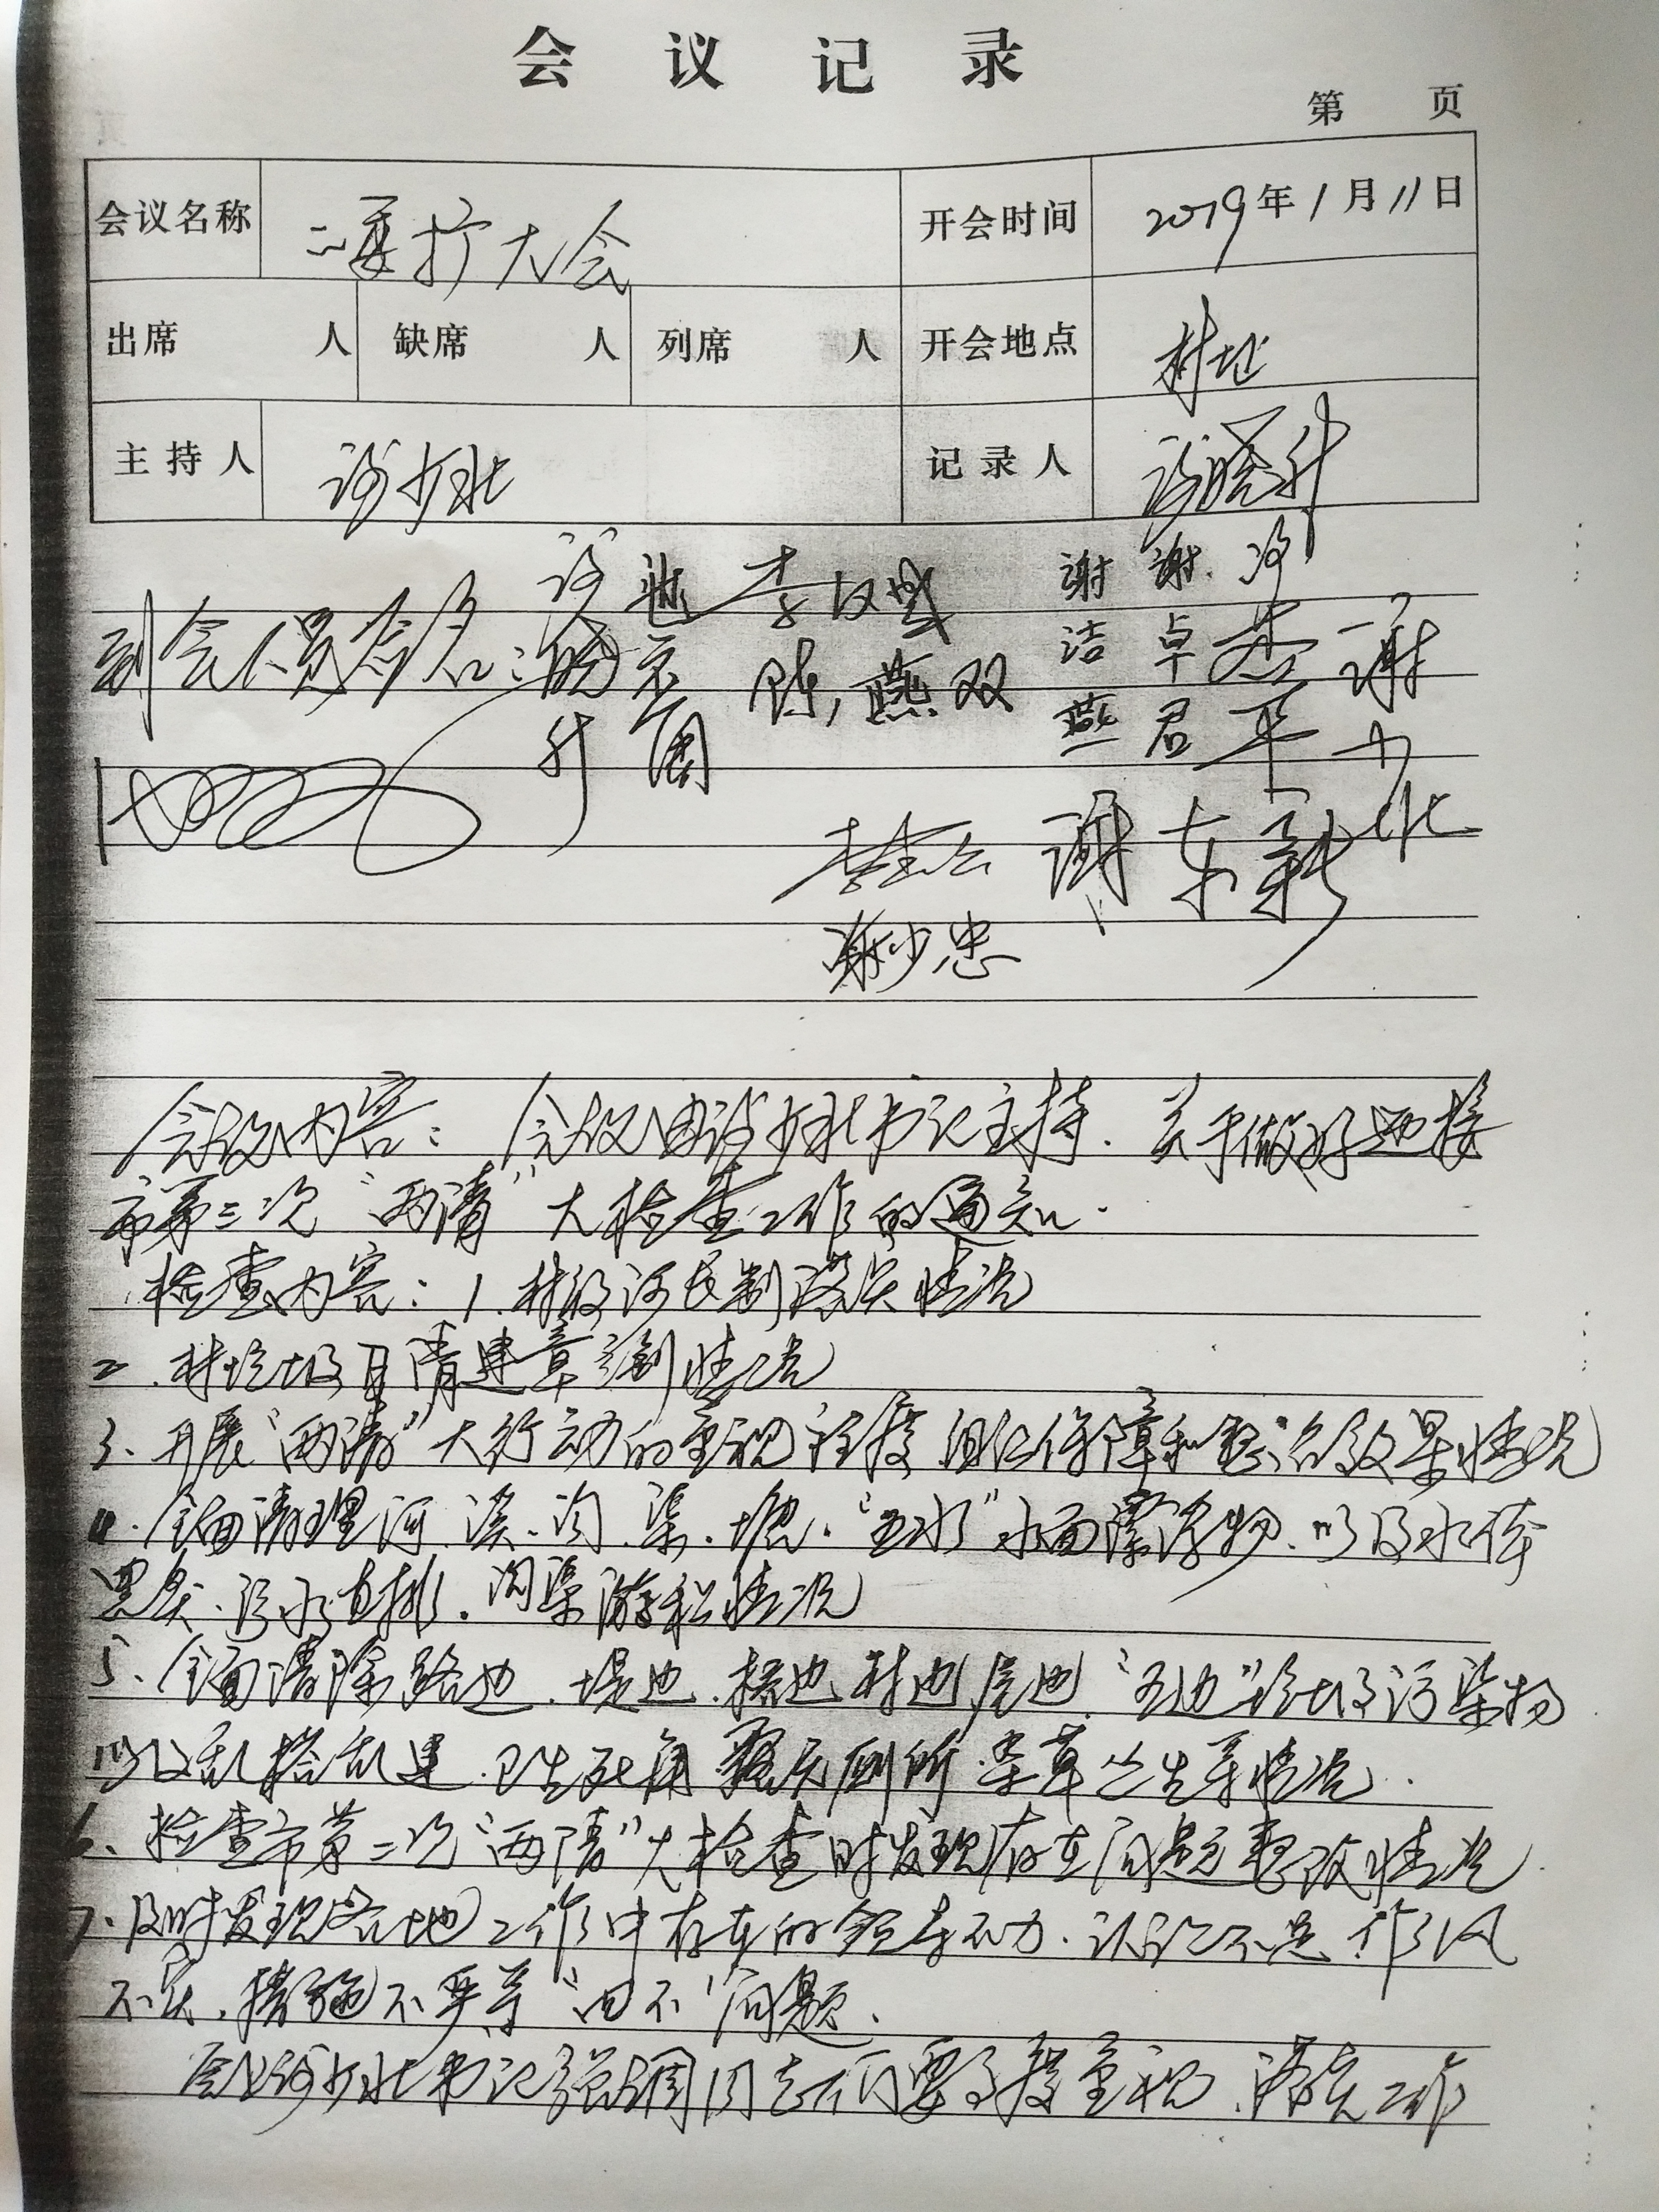 会议记录
第 页
会议名称 二委扩大会 开会时间 2019年1月11日
出席 人 缺席 人 列席 人 开会地点 村址
主持人 谢少北 记录人 谢晓升
到会人员签名：谢晓升
李汉
陈燕双
谢洁燕
谢卓君
谢少北
谢东新
谢少忠
会议内容：会议由谢少北书记主持.关于做好迎接
市第三次“两清”大检查工作的通知.
检查内容：1.村级河长制落实情况
2.村垃圾日清建章立制情况
3、开展“两清”大行动的重视程度、组织保障和整治效果情况
4.全面清理河、溪、沟、渠、塘.“五水”水面漂浮物.以及水体
黑臭、污水直排.沟渠淤积情况
5、全面清除路边、堤边、桥边村边房边“五边”垃圾污染物
以及乱搭乱建.卫生死角露天厕所.杂草丛生等情况.
6、检查市第二次“两清”大检查时发现存在问题整改情况.
7.及时发现各地工作中存在的领导不力.认识不足作风
不实.措施不严等“四不”问题.
会上谢少北书记强调同志们要高度重视.落实工作